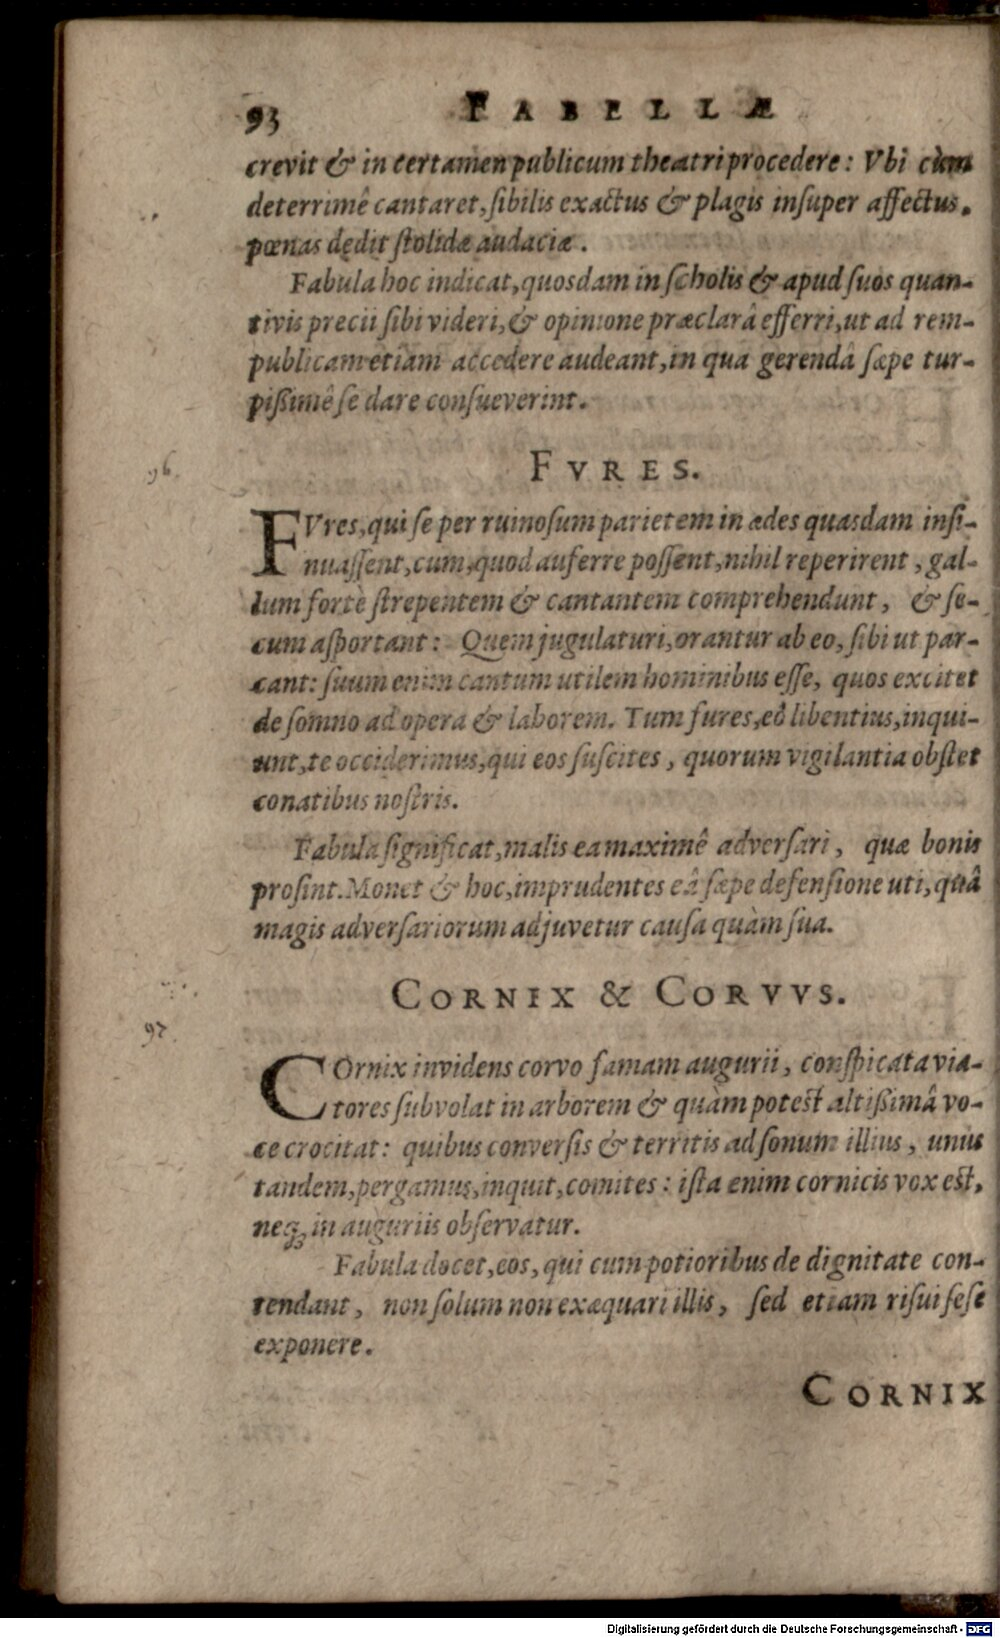 93 FABELLÆ
crevit & in certamen publicum theatri procedere: Vbi cùm
deterrimê cantaret, sibilis exactus & plagis insuper affectus,
pœnas dedit stolidæ audaciæ.
Fabula hoc indicat, quosdam in scholis & apud suos quan-
tivis precii sibi videri, & opinione præclarâ efferri, ut ad rem-
publicam etiam accedere audeant, in qua gerendâ sæpe tur-
pißimê se dare consueverint.
96.
FVRES.
FVres, qui se per ruinosum parietem in ædes quasdam insi-
nuassent, cum, quod auferre possent, nihil reperirent, gal-
lum fortè strepentem & cantantem comprehendunt, & se-
cum asportant: Quem jugulaturi, orantur ab eo, sibi ut par-
cant: suum enim cantum utilem hominibus esse, quos excitet
de somno ad opera & laborem. Tum fures, eô libentius, inqui-
unt, te occiderimus, qui eos suscites, quorum vigilantia obstet
conatibus nostris.
Fabula significat, malis ea maximê adversari, quæ bonis
prosint. Monet & hoc, imprudentes eâ sæpe defensione uti, quâ
magis adversariorum adjuvetur causa quàm sua.
CORNIX & CORVVS.
97.
COrnix invidens corvo famam augurii, conspicata via-
tores subvolat in arborem & quàm potest altißimâ vo-
ce crocitat: quibus conversis & territis ad sonum illius, unus
tandem, pergamus, inquit, comites: ista enim cornicis vox est,
neq; in auguriis observatur.
Fabula docet, eos, qui cum potioribus de dignitate con-
tendant, non solum non exæquari illis, sed etiam risui sese
exponere.
CORNIX
Digitalisierung gefördert durch die Deutsche Forschungsgemeinschaft - DFG